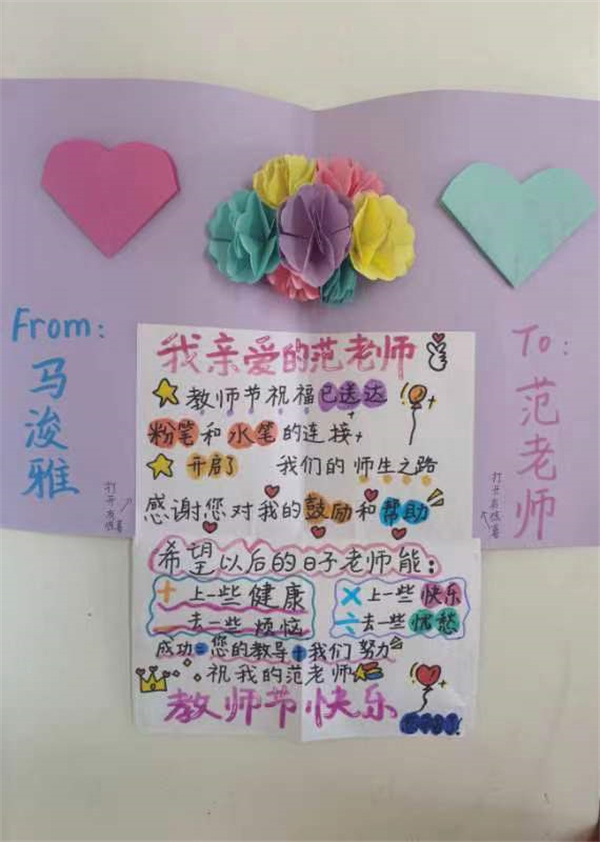 From:
马浚雅
打开有惊喜
To:
范老师
打开有惊喜
我亲爱的范老师
教师节祝福已送达
粉笔和水笔的连接
开启了 我们的师生之路
感谢您对我的鼓励和帮助
希望以后的日子老师能:
+上一些健康
×上一些快乐
一去一些烦恼
÷去一些忧愁
成功=您的教导+我们努力
祝我的范老师
教师节快乐